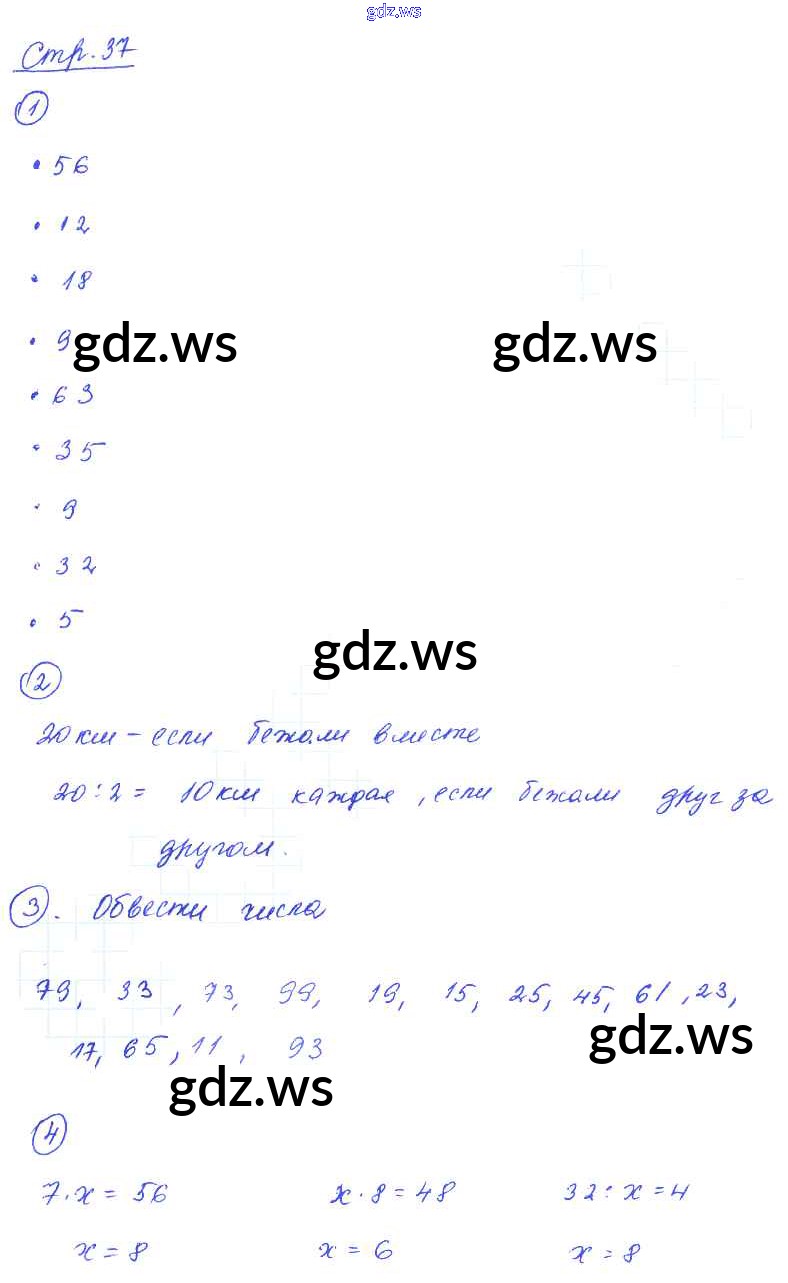 gdz.ws
Стр. 37
1
• 56
• 12
• 18
• 9
gdz.ws gdz.ws
• 63
• 35
• 9
• 32
• 5
gdz.ws
2
20 км – если бежали вместе
20 : 2 = 10 км каждая, если бежали друг за
другом.
3. Обвести числа
79, 33, 73, 99, 19, 15, 25, 45, 61, 23,
gdz.ws
17, 65, 11, 93
gdz.ws
4
7 · x = 56 x · 8 = 48 32 : x = 4
x = 8 x = 6 x = 8